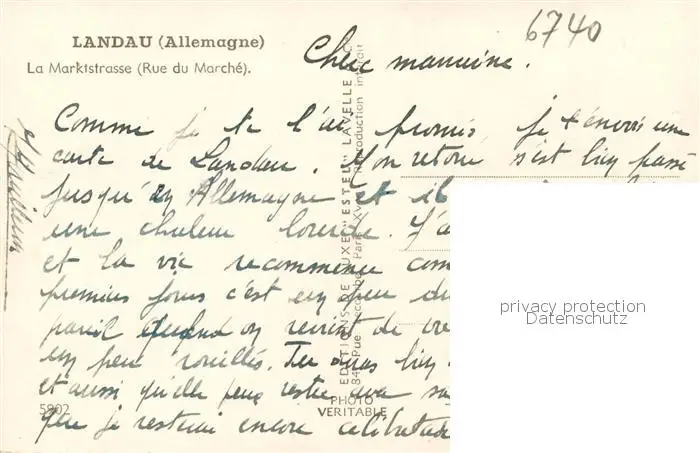 6740
LANDAU (Allemagne)
La Marktstrasse (Rue du Marché).
Chère marraine.
Comme je te l'ai promis, je t'envoie une
carte de Landau. Mon retour s'est bien passé
jusqu'en Allemagne et il
une chaleur lourde. J'a
et la vie recommence com
premiers jours c'est un peu du
pareil quand on revient de
un peu rouillés. Tu auras bien
et aussi qu'elle peux rester avec sa
que je resterai encore célibataire
EDITIONS DE LUXE "ESTEL" LAVELLE
84, Rue Paris XV Reproduction interdit
PHOTO
VERITABLE
5902
privacy protection
Datenschutz